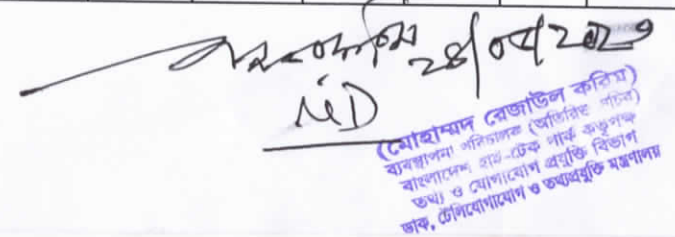 MD
(মোহাম্মদ রেজাউল করিম)
ব্যবস্থাপনা পরিচালক (অতিরিক্ত সচিব)
বাংলাদেশ হাই-টেক পার্ক কর্তৃপক্ষ
তথ্য ও যোগাযোগ প্রযুক্তি বিভাগ
ডাক, টেলিযোগাযোগ ও তথ্যপ্রযুক্তি মন্ত্রণালয়